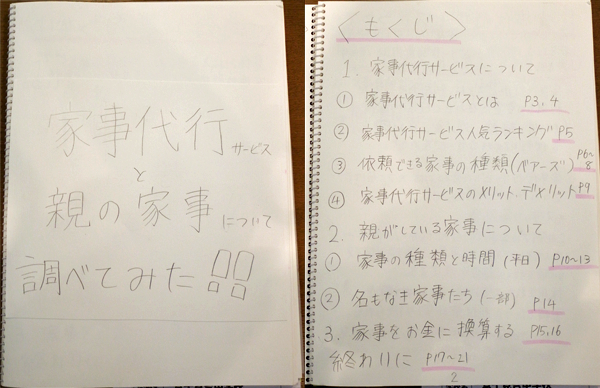 家事代行サービス
と
親の家事について
調べてみた!!
〈もくじ〉
1. 家事代行サービスについて
① 家事代行サービスとは P3,4
② 家事代行サービス人気ランキング P5
③ 依頼できる家事の種類(ベアーズ) P6~8
④ 家事代行サービスのメリット.デメリット P9
2. 親がしている家事について
① 家事の種類と時間(平日) P10~13
② 名もなき家事たち(一部) P14
3. 家事をお金に換算する P15,16
終わりに P17~21
2